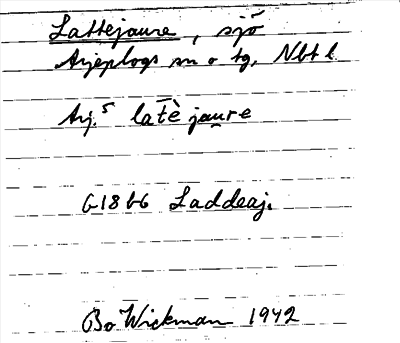 Lattejaure, sjö
Arjeplogs sn o tg, Nbt l.
Arj.⁵ lat̄è jau̯re
G1866 Laddeaj.
Bo Wickman 1942